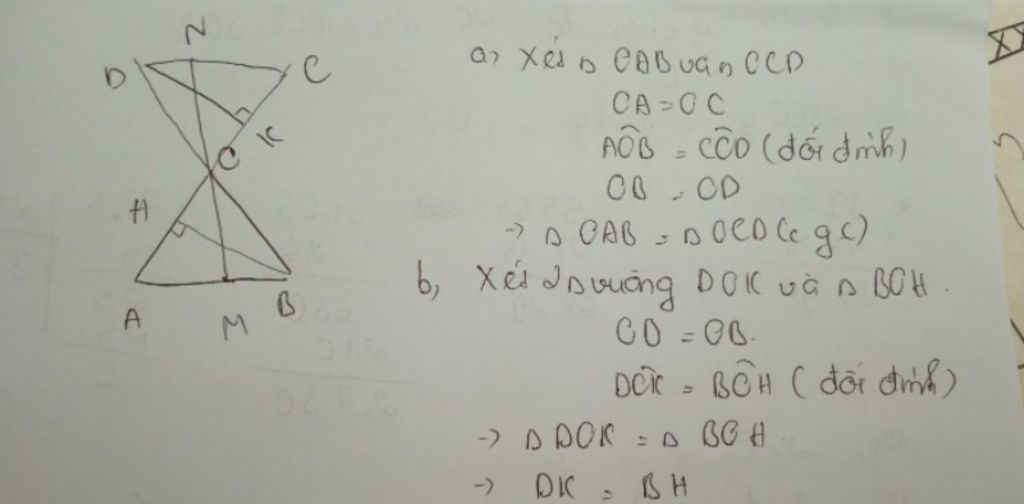 N
D
C
K
O
H
A
M
B
a) Xét Δ OAB và Δ OCD
OA = OC
AÔB = CÔD (đối đỉnh)
OB = OD
-> Δ OAB = Δ OCD (c.g.c)
b, Xét 2Δ vuông DOK và Δ BOH.
OD = OB.
DÔK = BÔH (đối đỉnh)
-> Δ DOK = Δ BOH
-> DK = BH